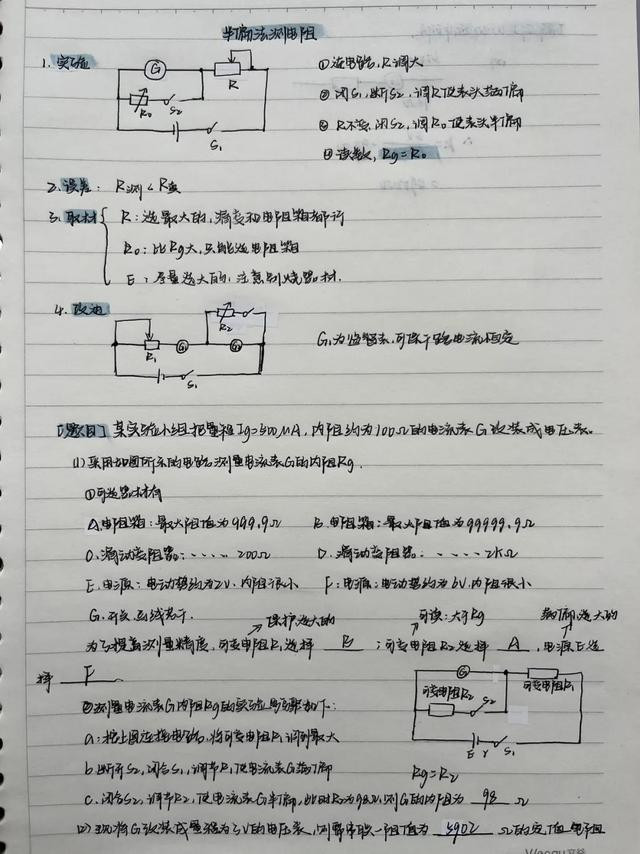 半偏法测电阻
1. 实验
G
R
R₀
S₂
S₁
①连电路, R调大
②闭S₁, 断S₂, 调R使表头满偏
③R不变, 闭S₂, 调R₀使表头半偏
④读数, Rg=R₀
2. 误差: R测<R真
3. 取材
R: 选最大的, 滑变和电阻箱都行
R₀: 比Rg大, 只能选电阻箱
E: 尽量选大的, 注意别烧器材.
4. 改进
R₂
R₁
G₁
G₂
S₁
G₁为监督表, 可保干路电流恒定
[题目] 某实验小组把量程Ig=500μA, 内阻约为100Ω的电流表G改装成电压表.
(1) 采用如图所示的电路测量电流表G的内阻Rg.
①可选器材有
A. 电阻箱: 最大阻值为999.9Ω B. 电阻箱: 最大阻值为99999.9Ω
C. 滑动变阻器: ····· 200Ω D. 滑动变阻器: ····· 2kΩ
E. 电源: 电动势约为2V, 内阻很小 F. 电源: 电动势约为6V, 内阻很小
G. 开关, 导线若干.
保护选大的 可读: 大于Rg 满偏, 选大的
为了提高测量精度, 可变电阻R₁选择 B ; 可变电阻R₂选择 A , 电源E选
择 F
G
可变电阻R₂
可变电阻R₁
S₂
E r S₁
②测量电流表G内阻Rg的实验步骤如下:
a. 按上图连接电路, 将可变电阻R₁调到最大
b. 断开S₂, 闭合S₁, 调节R₁使电流表G满偏
Rg=R₂
c. 闭合S₂, 调节R₂, 使电流表G半偏, 此时R₂为98Ω, 则G的内阻为 98 Ω
(2) 现将G改装成量程为3V的电压表, 则需串联一阻值为 5902 Ω的定值电阻